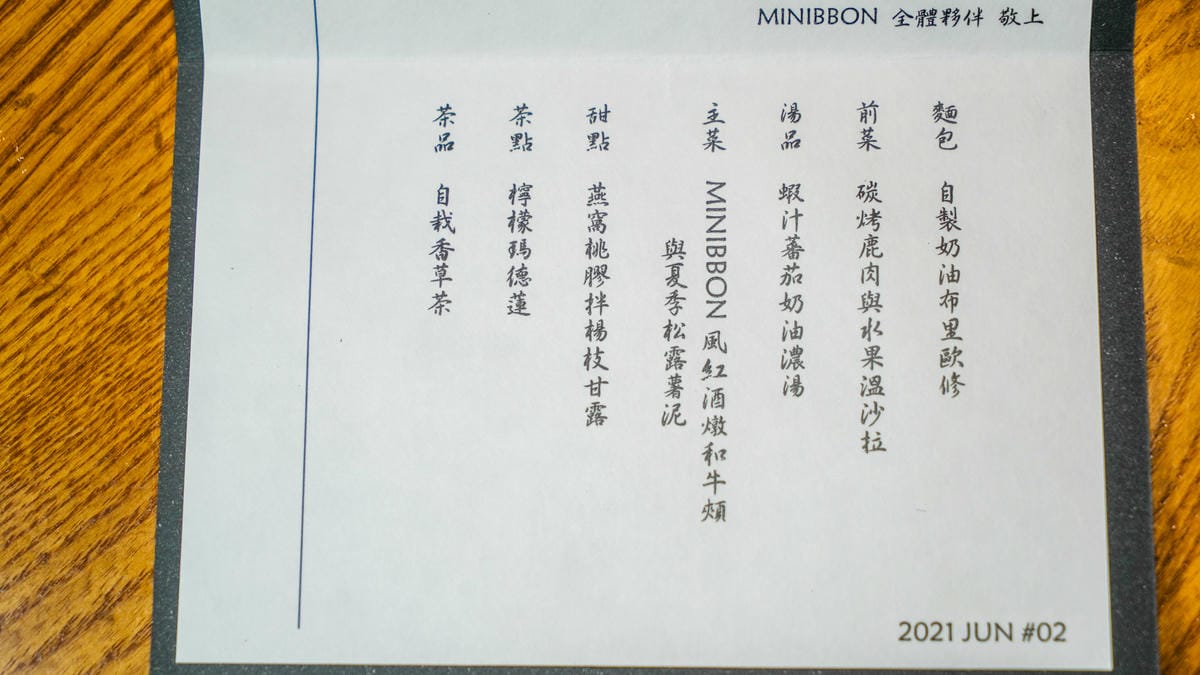 MINIBBON 全體夥伴 敬上
麵包 自製奶油布里歐修
前菜 碳烤鹿肉與水果溫沙拉
湯品 蝦汁蕃茄奶油濃湯
主菜 MINIBBON 風紅酒燉和牛頰
與夏季松露薯泥
甜點 燕窩桃膠拌楊枝甘露
茶點 檸檬瑪德蓮
茶品 自栽香草茶
2021 JUN #02